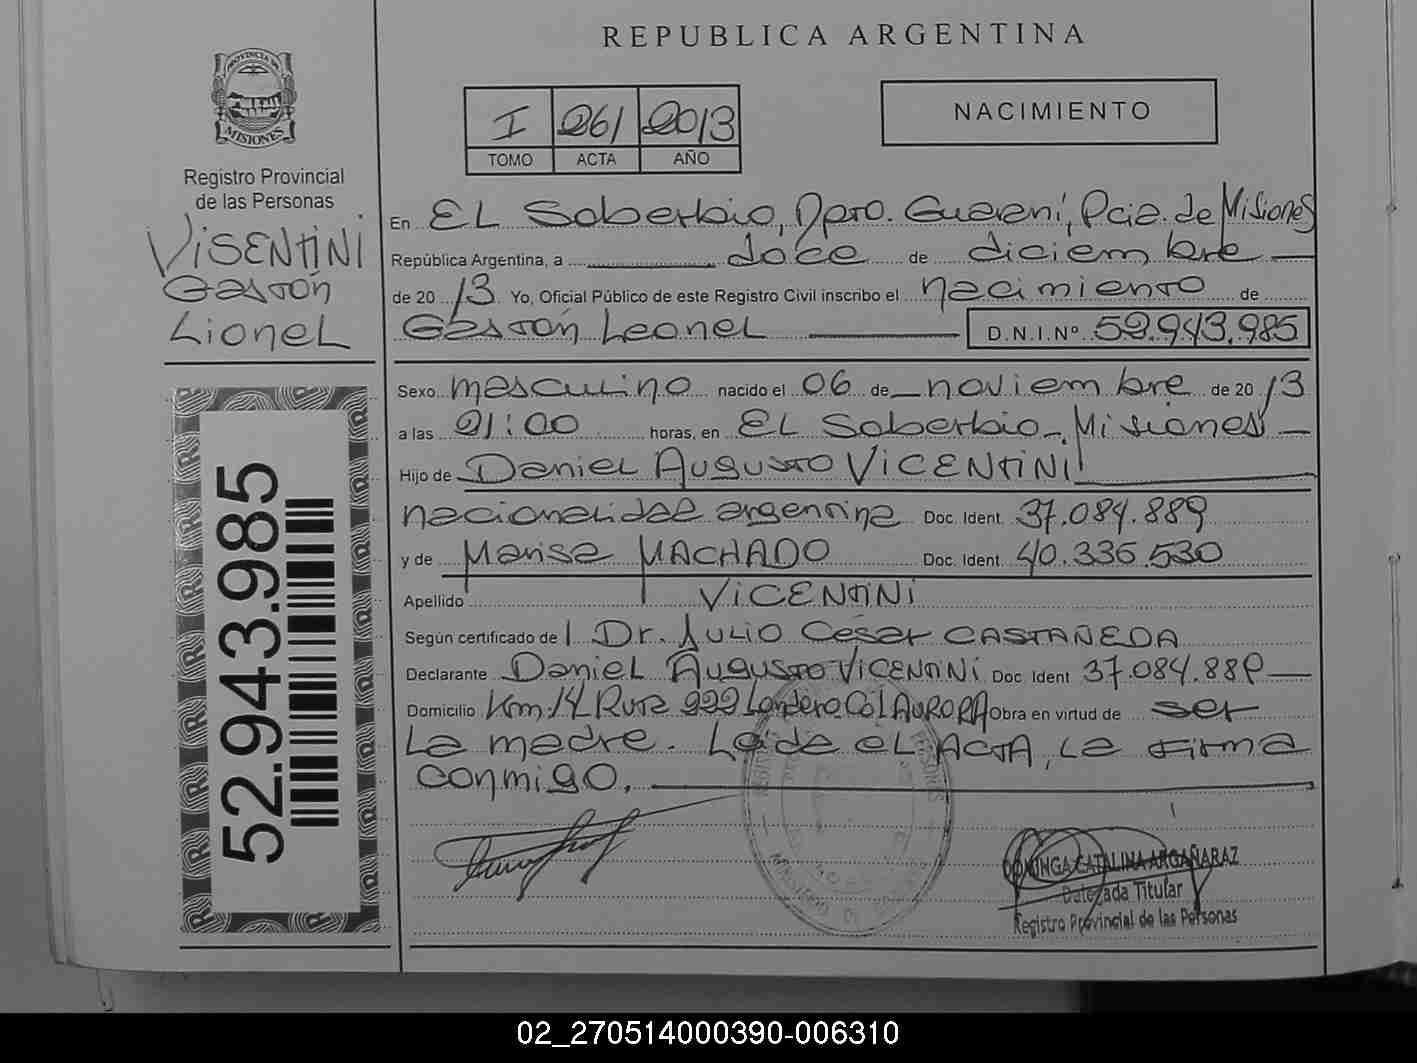 REPUBLICA ARGENTINA
PROVINCIA DE
MISIONES
Registro Provincial
de las Personas
VISENTINI
Gastón
Lionel
I 261 2013
TOMO ACTA AÑO
NACIMIENTO
En El Soberbio, Dpto. Guaraní, Pcia. de Misiones
República Argentina, a doce de diciembre
de 20 13 Yo, Oficial Público de este Registro Civil inscribo el nacimiento de
Gastón Leonel D.N.I.Nº 52.943.985
Sexo masculino nacido el 06 de noviembre de 20 13
a las 21:00 horas, en El Soberbio-, Misiones
Hijo de Daniel Augusto VICENTINI
nacionalidad argentina Doc. Ident. 37.084.889
y de Marisa MACHADO Doc. Ident. 40.336.530
Apellido VICENTINI
Según certificado de Dr. Julio César CASTAÑEDA
Declarante Daniel Augusto VICENTINI Doc. Ident 37.084.889
Domicilio Km. 14 Ruta 222 Londero Col AURORA Obra en virtud de ser
la madre. Leída el ACTA, la firma
conmigo.
52.943.985
DOMINGA CATALINA ARGAÑARAZ
Delegada Titular
Registro Provincial de las Personas
02_270514000390-006310